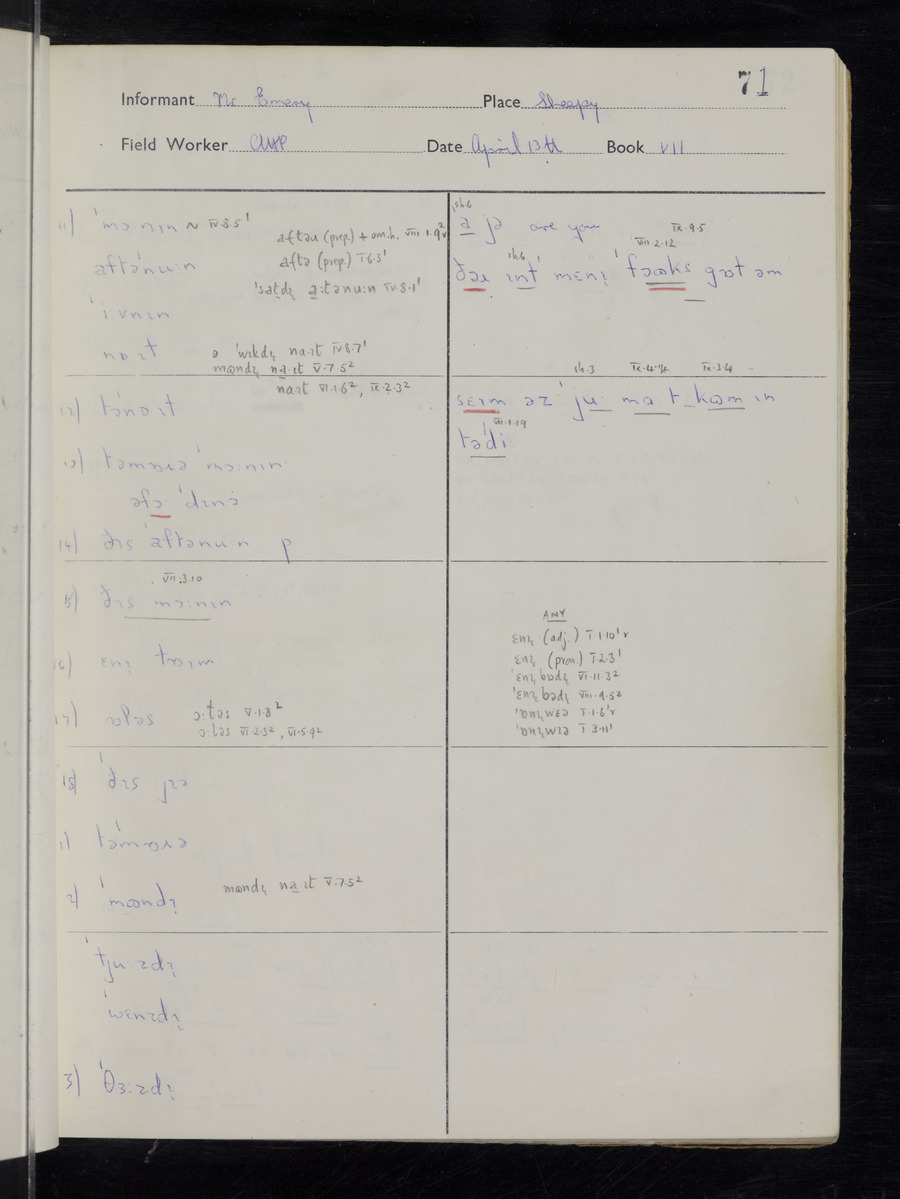 71
Informant Mr Emery Place Sheepy
Field Worker Date April 13th Book VII
11) ˈmɔːnɪn ~ IV.8.5¹
aftəu (prep.) + om.h. VIII.1.9²
aftəˈnuːn
aftə (prep.) I.6.3¹
ˈsatdɪ aːtənuːn IV.8.1¹
ˈiːvnɪn
nɒɪt
ə ˈwɪkdɪ naɪt IV.8.7¹
mʊndɪ naɪt V.7.5²
naɪt VI.1.6², IX.2.3²
12) təˈnɒɪt
13) təmɒɹə ˈmɔːnɪn
əfɔː ˈdɪnə
14) ðɪs ˈaftənuːn p
VII.3.10
15) ðɪs mɔːnɪn
16) ɛnɪ tɒɪm
17) ɒləs
ɔːtəs V.1.8²
ɔːləs VI.2.3², VI.5.9²
18) ˈðɪs jɪə
1) təˈmɒɹə
2) ˈmʊndɪ
mʊndɪ naɪt V.7.5²
ˈtjuːzdɪ
ˈwɛnzdɪ
3) ˈθɜːzdɪ
sh.6
ə jə are you
IX.9.5
VII.2.12
sh.6
ðəɪ ɪnt mɛnɪ ˈfʊəks gɒt əm
sh.3
IX.3.4
sɛɪm əz ˈjuː mɑt kʊm ɪn
VII.1.19
təˈdi
ANY
ɛnɪ (adj.) I.1.10¹r
ɛnɪ (pron.) I.2.3¹
ˈɛnɪbɒdɪ VI.11.3²
ˈɛnɪbədɪ VIII.9.5²
ˈɒnɪwɛə I.1.6¹r
ˈɒnɪwɪə I.3.11¹